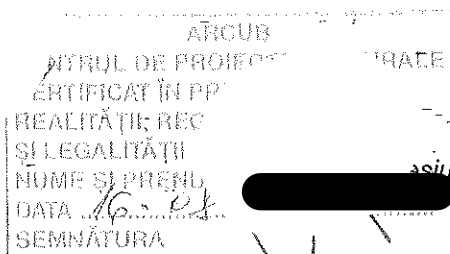 ARCUB
NTRUL DE PROIECT RALE
ERTIFICAT ÎN PR
REALITĂȚII, REG
ȘI LEGALITĂȚII
NUME ȘI PRENU
DATA 16.
SEMNĂTURA